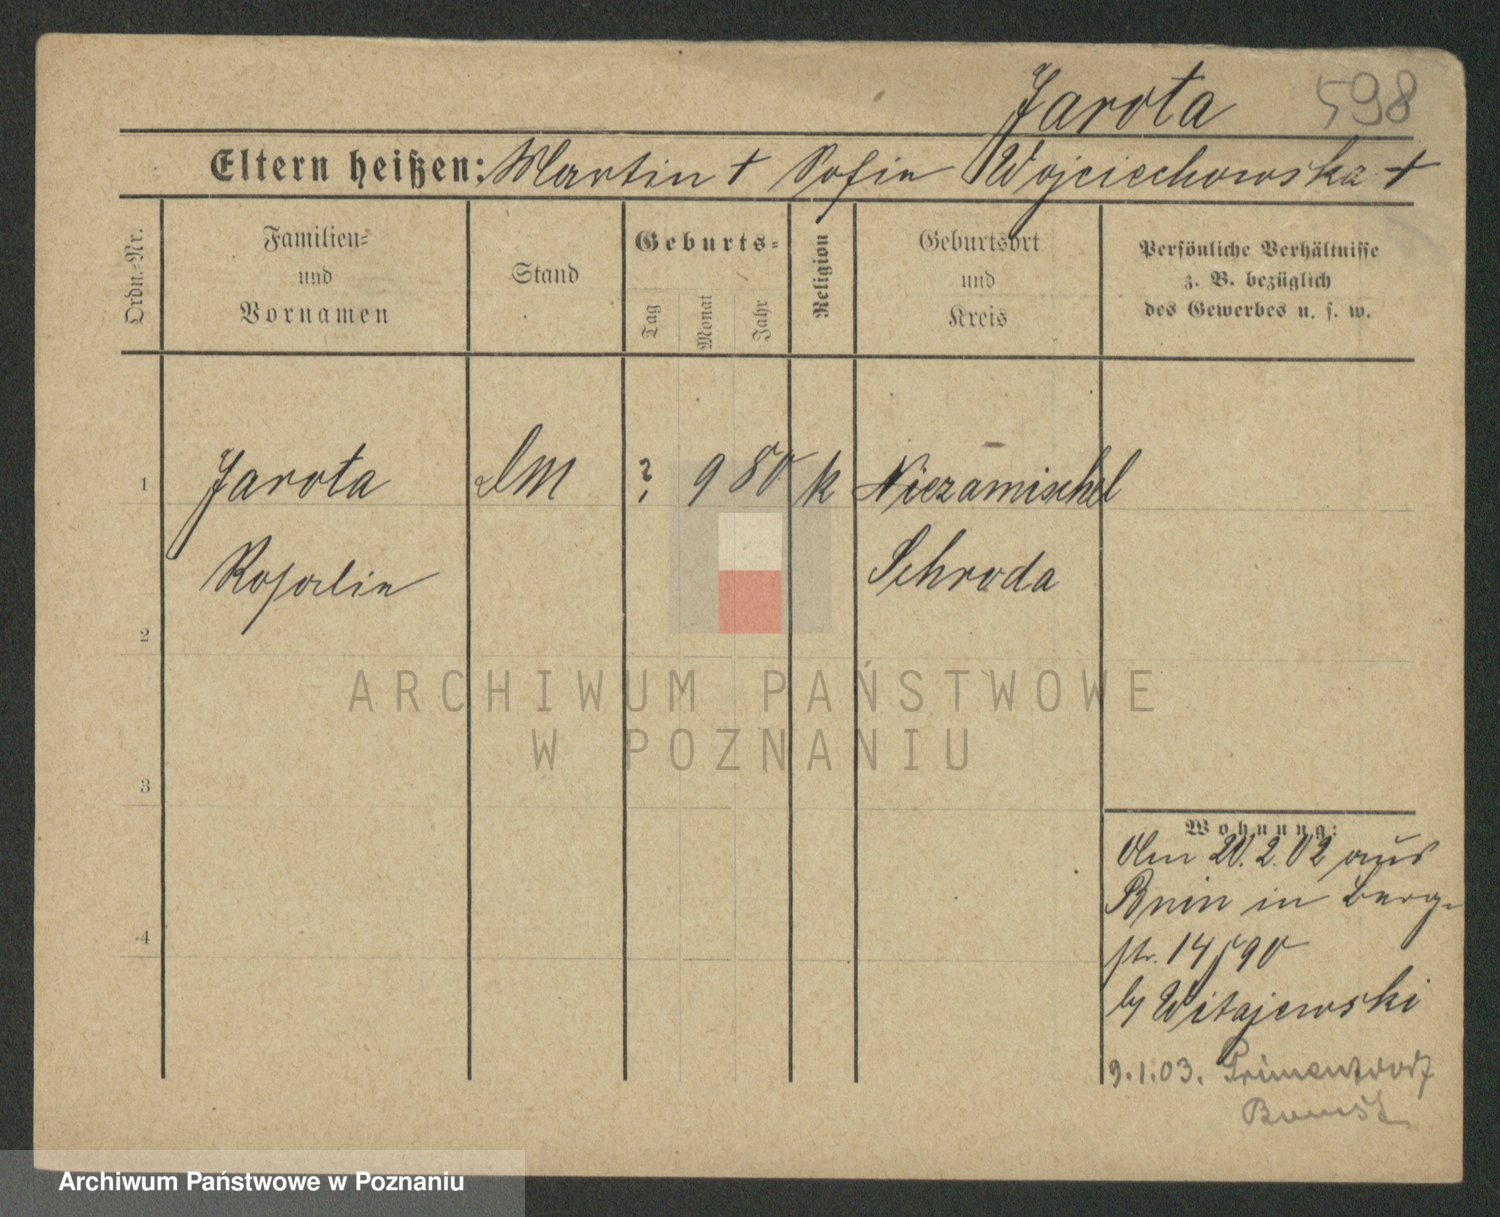 Jarota 598
Eltern heißen: Martin + Sofie Wojciechowska +
Ordn.-Nr.
Familien-
und
Vornamen
Stand
Geburts-
Tag
Monat
Jahr
Religion
Geburtsort
und
Kreis
Persönliche Verhältnisse
z. B. bezüglich
des Gewerbes u. s. w.
1 Jarota DM ? 9 80 k Niezamischel
Rosalie Schroda
2
3
4
Wohnung:
Am 20.2.02 aus
Bnin in Berg-
str. 14/90
by Witajewski
9.1.03. Primentdorf
Bomst
ARCHIWUM PAŃSTWOWE
W POZNANIU
Archiwum Państwowe w Poznaniu